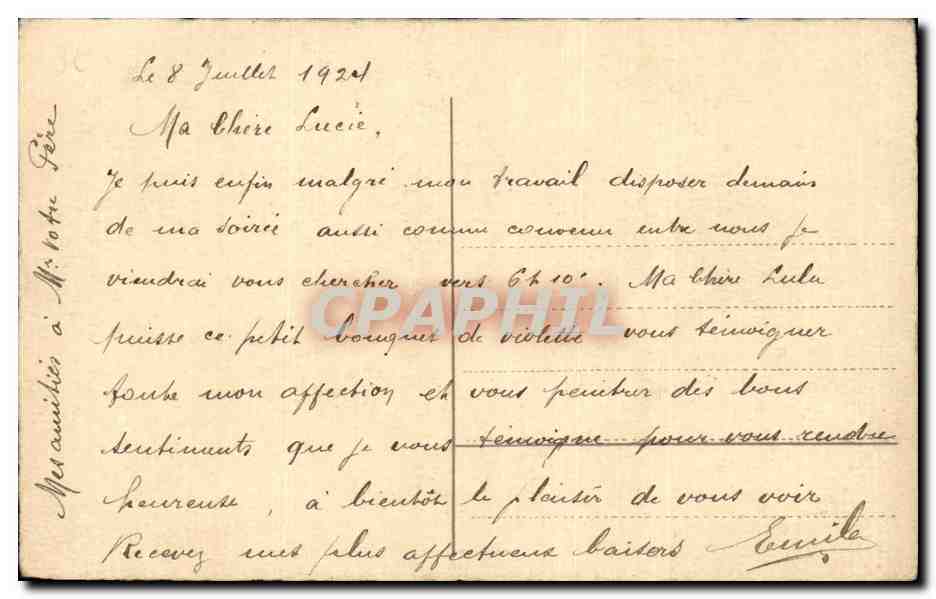 Le 8 Juillet 1924
Ma Chère Lucie,
Je puis enfin malgré mon travail disposer demain
de ma soirée aussi comme convenu entre nous je
viendrai vous chercher vers 6h10'. Ma Chère Lulu
puisse ce petit bouquet de violette vous témoigner
toute mon affection et vous pénétrer des bons
sentiments que je vous témoigne pour vous rendre
heureuse, à bientôt le plaisir de vous voir
Recevez mes plus affectueux baisers Emile
Mes amitiés à Mr votre Père
CPAPHIL